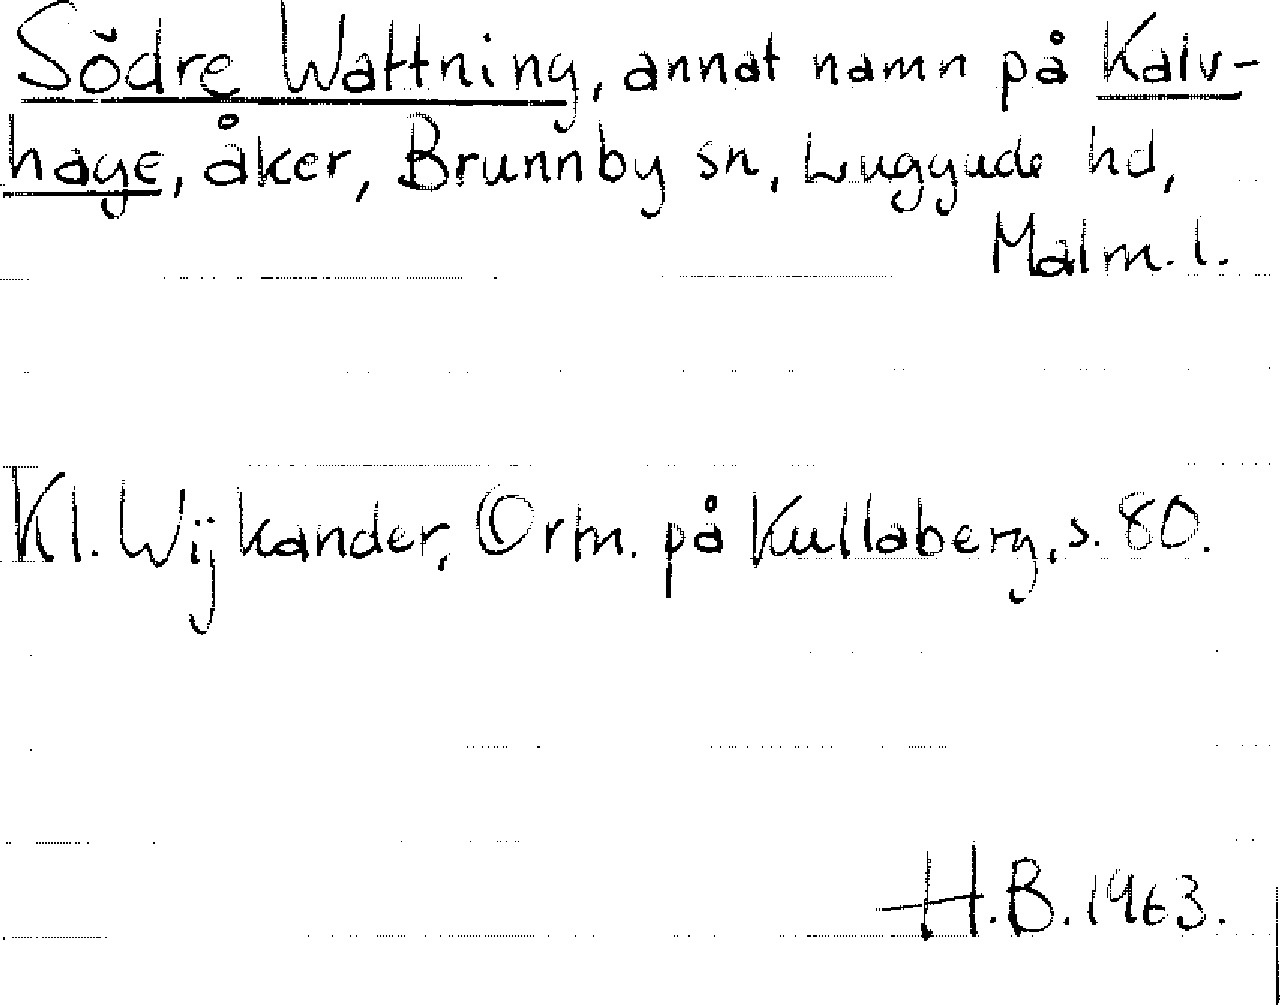 Södre Wattning, annat namn på Kalv-
hage, åker, Brunnby sn, Luggude hd,
Malm. l.
Kl. Wijkander, Ortn. på Kullaberg, s. 80.
H.B. 1963.